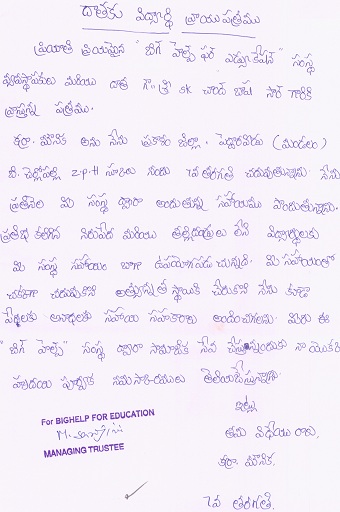 దాతకు విద్యార్థి వ్రాయు పత్రము
ప్రియాతి ప్రియమైన "బిగ్ హెల్ప్ ఫర్ ఎడ్యుకేషన్" సంస్థ
వ్యవస్థాపకులు మరియు దాత గౌ॥ శ్రీ sk చాంద్ బాషా సార్ గారికి
వ్రాస్తున్న పత్రము.
కర్రా. మౌనిక అను నేను ప్రకాశం జిల్లా. పెద్దారవీడు (మండలం)
బి. చెర్లోపల్లి z.p.H స్కూలు నందు 7వ తరగతి చదువుతున్నాను. నేను
ప్రతినెల మీ సంస్థ ద్వారా అందుతున్న సహాయము పొందుతున్నాను.
ప్రతిభ కలిగిన నిరుపేద మరియు తల్లిదండ్రులు లేని విద్యార్థులకు
మీ సంస్థ సహాయం బాగా ఉపయోగపడుచున్నది. మీ సహాయంతో
చక్కగా చదువుకొని అత్యున్నత స్థాయికి చేరుకొని నేను కూడా
పేదలకు అనాధలకు సహాయ సహకారాలు అందించగలను. మీరు ఈ
"బిగ్ హెల్ప్" సంస్థ ద్వారా సామాజిక సేవ చేస్తున్నందుకు నా యొక్క
హృదయ పూర్వక నమస్కారములు తెలియజేస్తున్నాను.
ఇట్లు
తమ విధేయు రాలు,
కర్రా. మౌనిక.
7వ తరగతి.
For BIGHELP FOR EDUCATION
MANAGING TRUSTEE